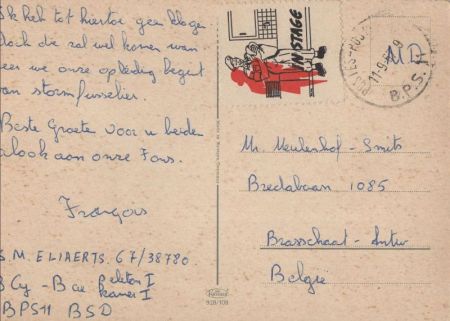 Ik heb tot hiertoe geen klagen
doch die zal wel komen wan
neer we onze opleiding begint
van stormfuselier.
Beste Groeten voor u beiden
alook aan onze Fons.
François
S.M. ELIAERTS. 67/38780
3 Cy - B ae peleton I
kamer I
BPS11 BSD
IN STAGE
POSTES-POST
B.P.S. 11
M.D
Mr. Meulenhof - Smits
Bredabaan 1085
Brasschaat - Antw
België
928/109